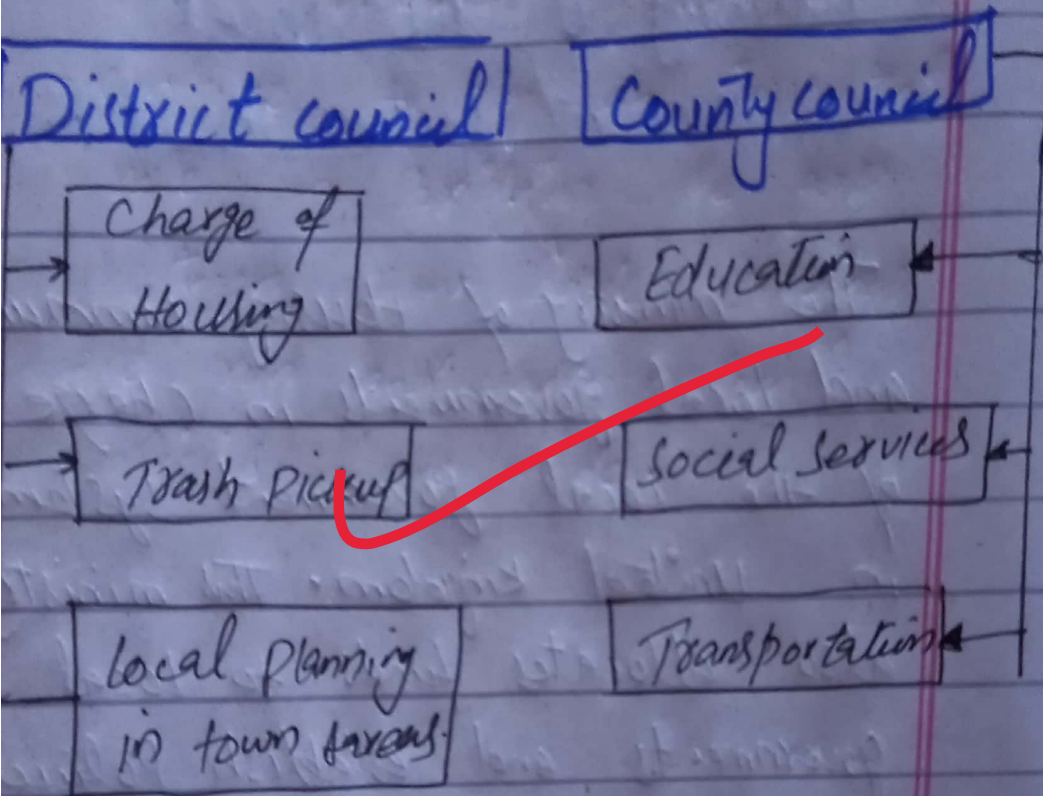 District council
Charge of
Housing
Trash Pickup
Local Planning
in town & areas.
County council
Education
Social Services
Transportation